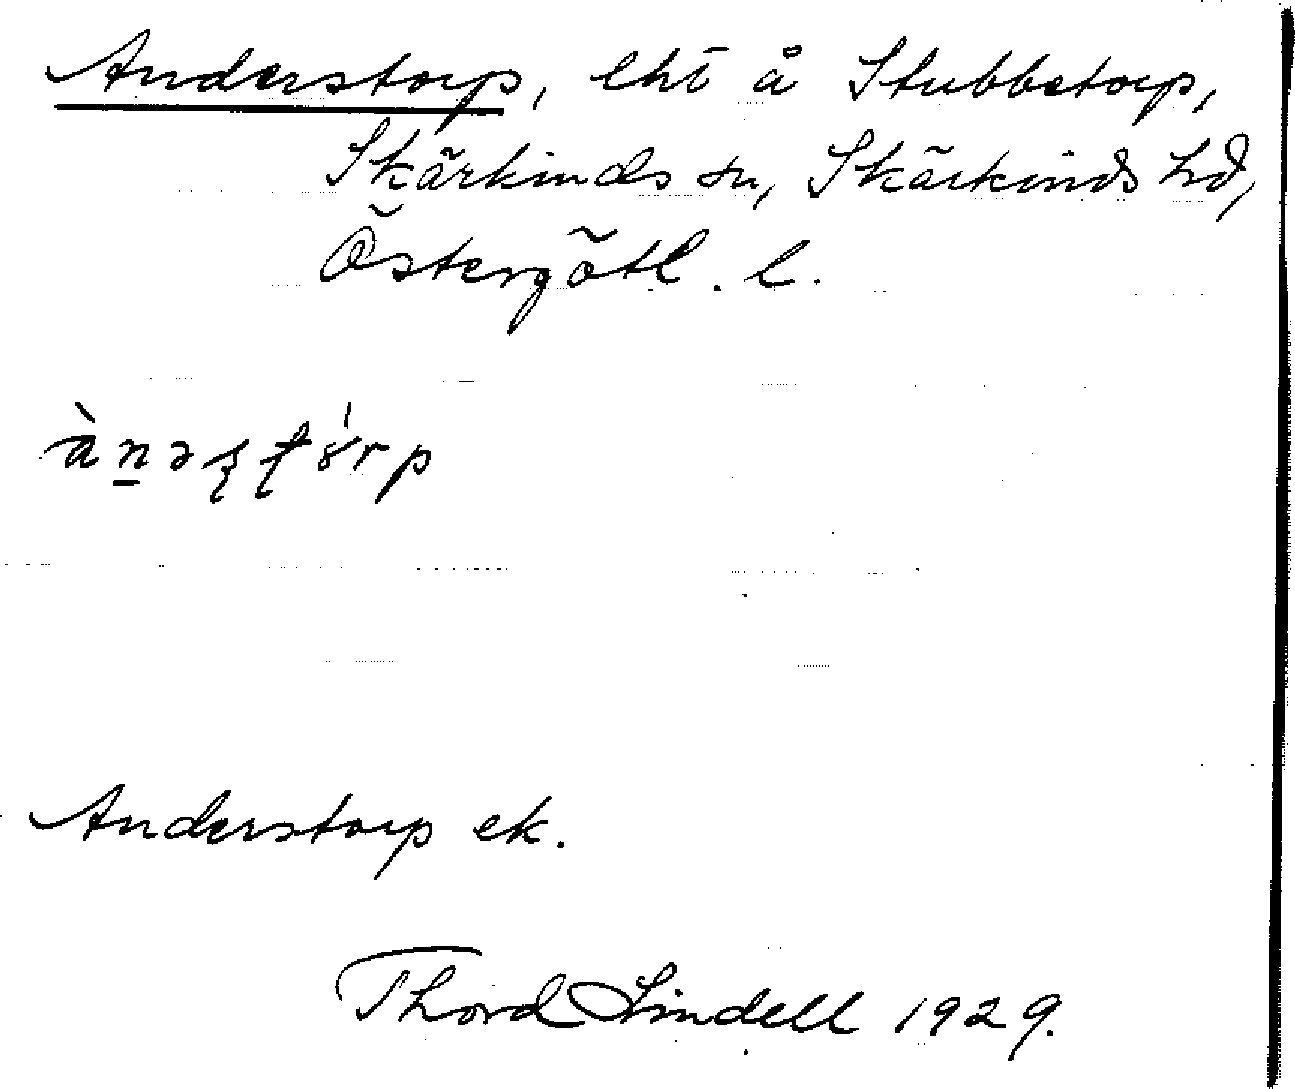 Anderstorp, lht å Stubbetorp,
Skärkinds sn, Skärkinds hd,
Östergötl. l.
Anderstorp ek.
Thord Lindell 1929.